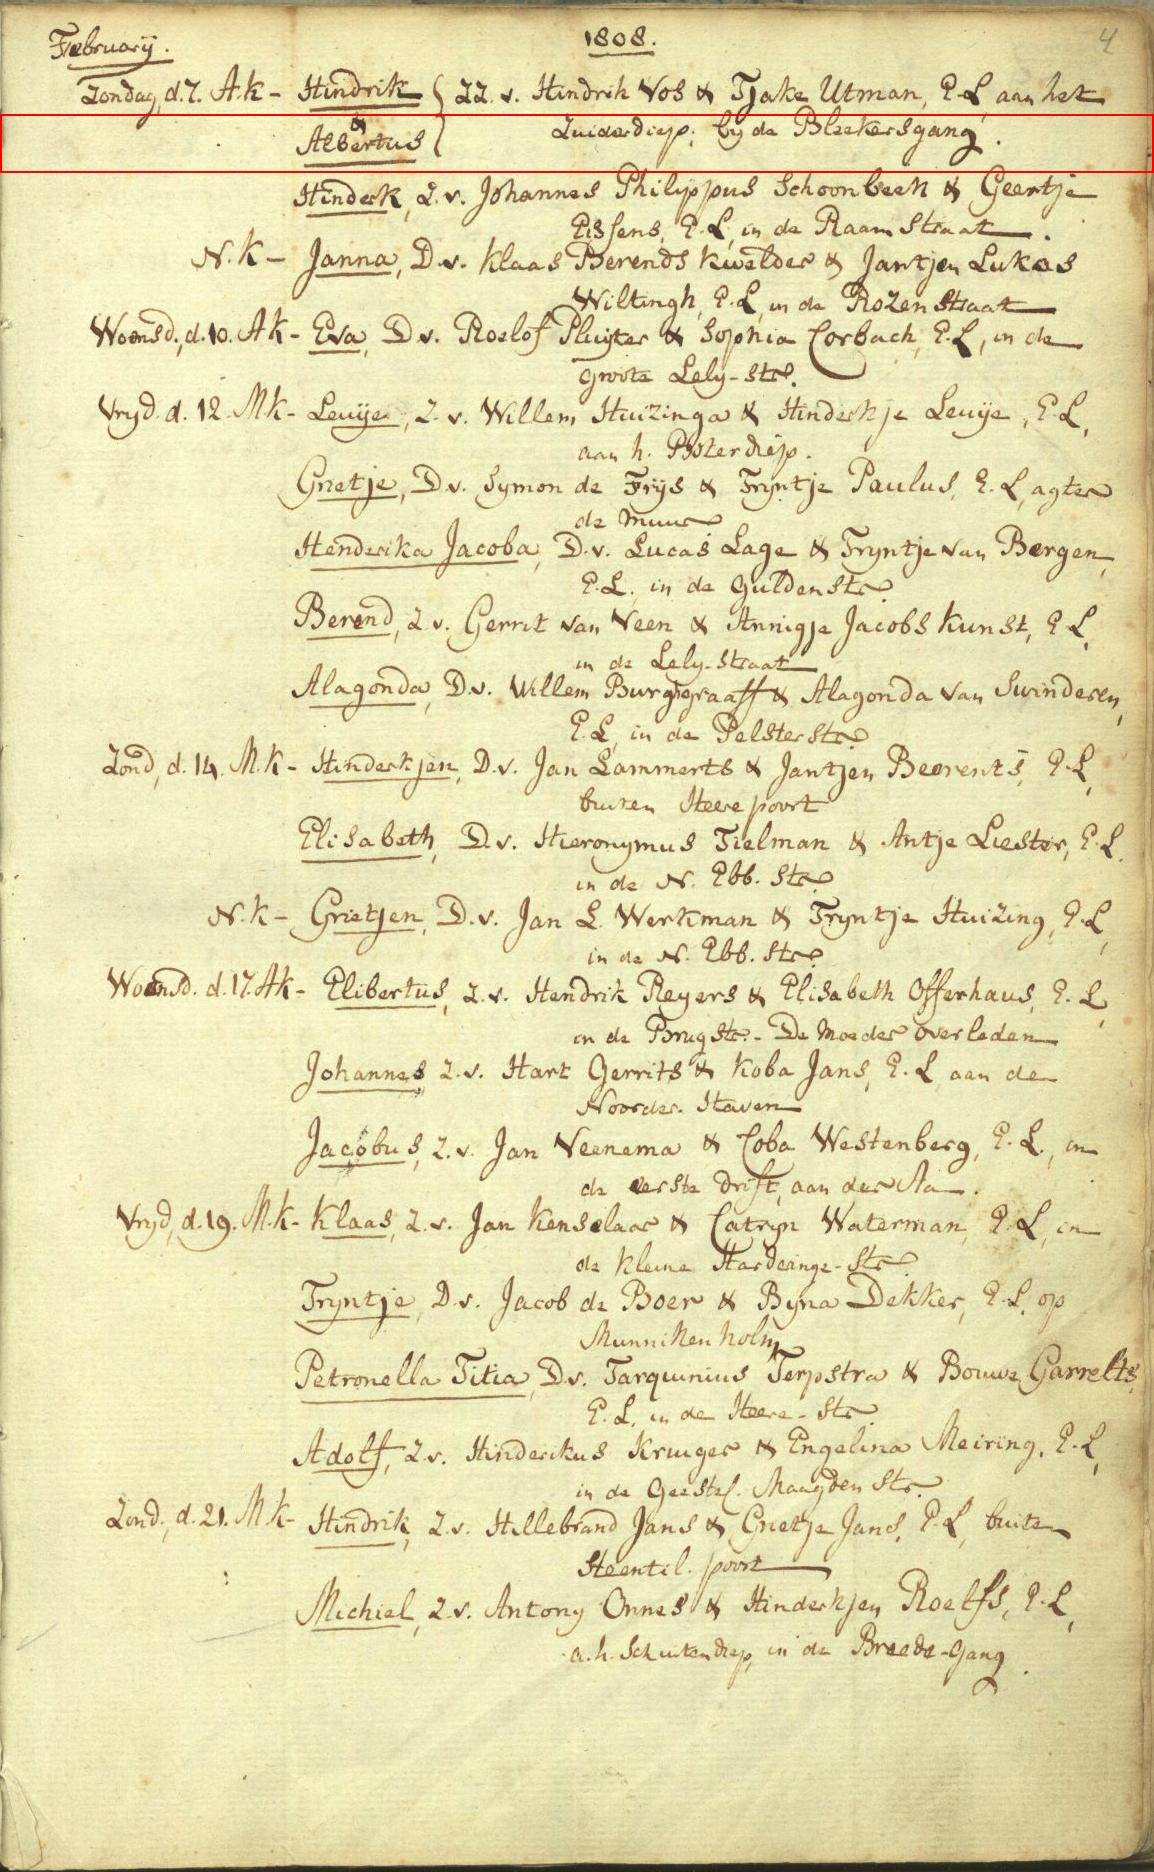 February.
1808.
4
Zondag, d. 7. A.k - Hindrik { ZZ. v. Hindrik Vos & Tjake Utman, E.L, aan het
& Albertus { Zuiderdiep, by de Bleekersgang.
Hinderk, Z. v. Johannes Philippus Schoonbeek & Geertje
Eissens, E.L, in de Raam Straat.
N.k - Janna, D.v. Klaas Berends Kwelder & Jantjen Lukas
Wiltingh, E.L, in de Rozen Straat
Woensd., d. 10. A.k - Eva, D.v. Roelof Pluijter & Sophia Corbach, E.L, in de
groote Lely-str.
Vryd. d. 12. M.k - Leuije, Z. v. Willem Huizinga & Hinderkje Leuije, E.L,
aan h. Poterdiep.
Grietje, D.v. Symon de Frijs & Tryntje Paulus, E.L, agter
de Muur
Henderika Jacoba, D.v. Lucas Lage & Tryntje van Bergen,
E.L. in de Gulden str.
Berend, Z. v. Gerrit van Veen & Annigje Jacobs Kunst, E.L,
in de Lely-Straat
Alagonda, D.v. Willem Burggraaff & Alagonda van Swinderen,
E.L, in de Pelster str.
Zond, d. 14. M.k - Hinderkjen, D.v. Jan Lammerts & Jantjen Beerents, E.L,
buiten Heere poort
Elisabeth, D.v. Hieronymus Tielman & Antje Liester, E.L.
in de N. Ebb. Str.
N.k - Grietjen, D.v. Jan L. Werkman & Tryntje Huizing, E.L,
in de N. Ebb. Str.
Woensd. d. 17. A.k - Elibertus, Z.v. Hendrik Reyers & Elisabeth Offerhaus, E.L,
in de Brug Str. - De Moeder overleden
Johannes, Z.v. Hart Gerrits & Koba Jans, E.L, aan de
Noorder. Haven
Jacobus, Z.v. Jan Veenema & Coba Westenberg, E.L., in
de eerste Drift, aan der Aa.
Vryd, d. 19. M.k - Klaas, Z.v. Jan Kenselaar & Catryn Waterman, E.L, in
de kleine Harderinge-Str.
Tryntje, D.v. Jacob de Boer & Byna Dekker, E.L, op
Munnikenholm
Petronella Titia, D.v. Tarquinius Terpstra & Bouwe Garrelts,
E.L, in de Heere-Str.
Adolf, Z.v. Hinderikus Kruiger & Engelina Meiring, E.L,
in de Geestel. Maagden Str.
Zond., d. 21. M.k - Hindrik, Z.v. Hillebrand Jans & Grietje Jans, E.L, buiten
Steentil. poort
Michiel, Z.v. Antony Onnes & Hinderkjen Roelfs, E.L,
a. h. Schuitendiep, in de Breede-Gang.